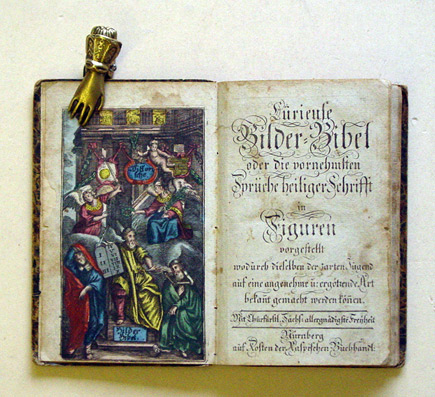 Bilder
Bibel
Curieuse
Bilder-Bibel
oder die vornehmsten
Sprüche heiliger Schrifft
in
Figuren
vorgestellt
wodurch dieselben der zarten Jugend
auf eine angenehme u: ergötzende Art
bekañt gemacht werden köñen.
Mit Churfürstl. Sächs: allergnädigste Freyheit
Nürnberg
auf Kosten der Raspischen Buchhandl: